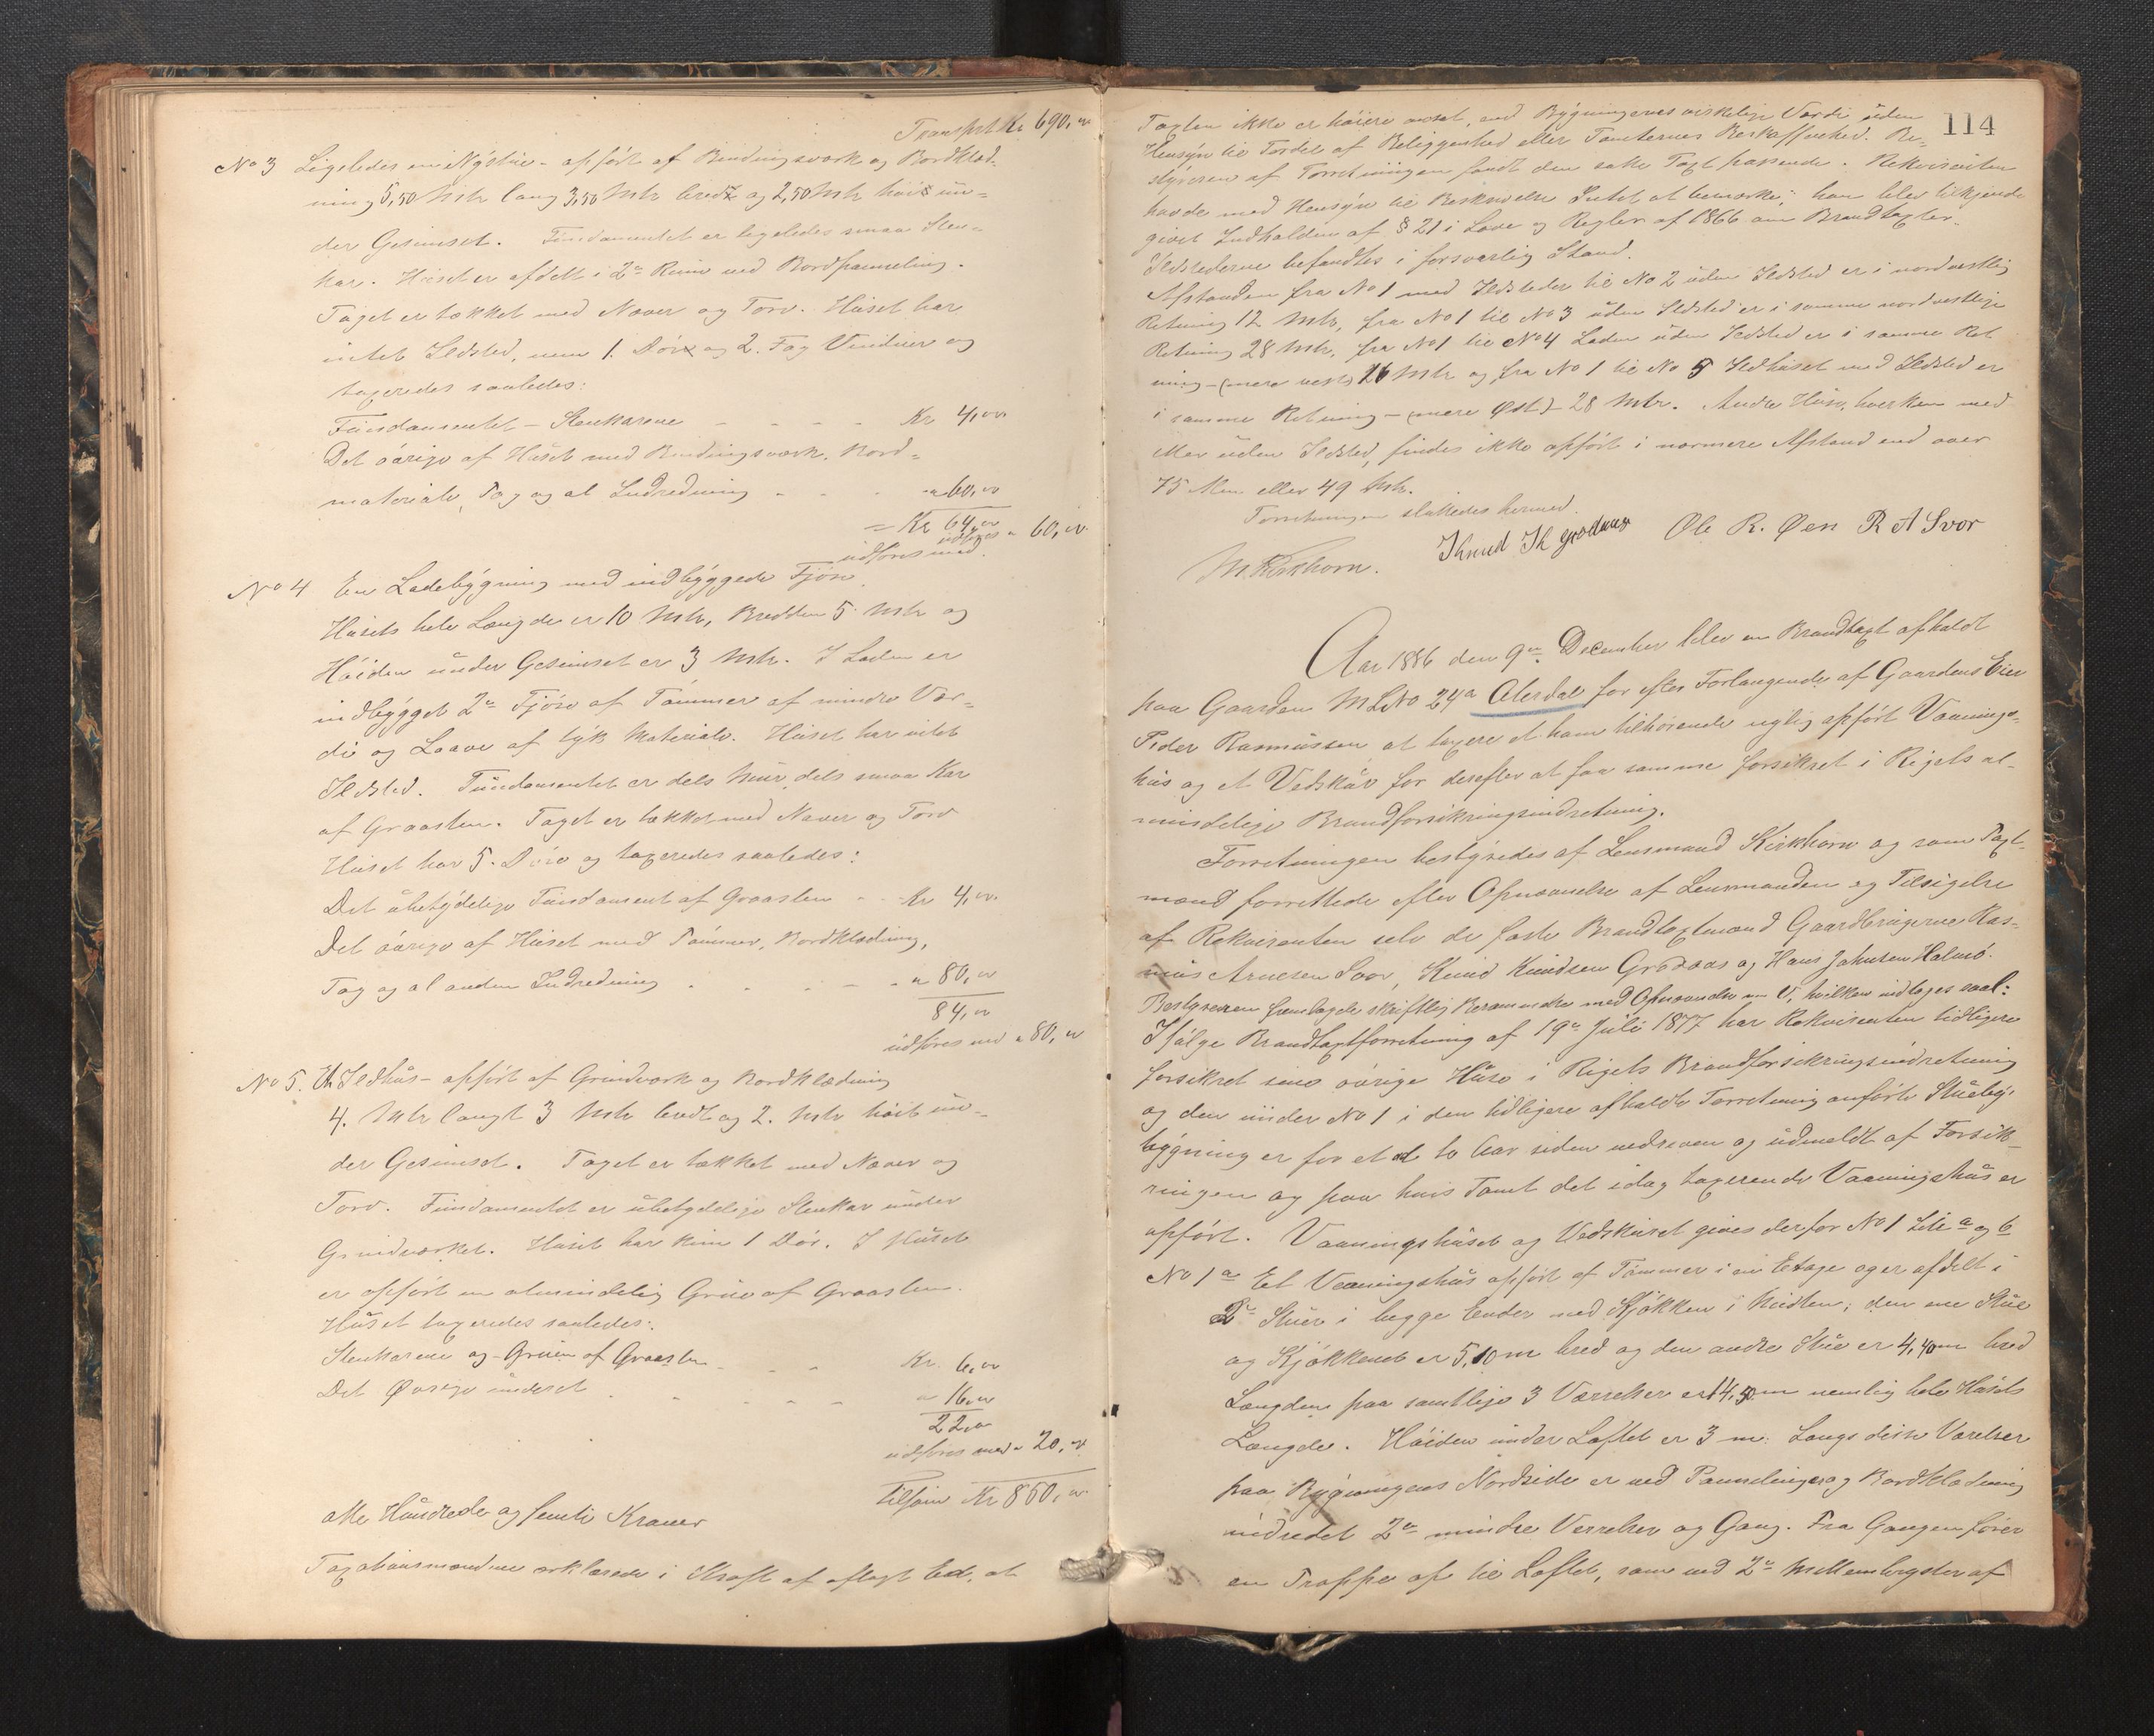 Transport Kr 690,00
No 3 Ligeledes en Nystue - opført af Bindingsværk og Bordklæd-
ning 5,50 Mtr lang 3,50 Mtr bred og 2,50 Mtr høi un-
der Gesimset. Fundamentet er ligeledes smaa Sten-
kar. Huset er afdelt i 2de Rum ved Bordpanneling.
Taget er tækket med Næver og Torv. Huset har
intet Ildsted, men 1. Dør og 2. Fag Vinduer og
taxeredes saaledes:
Fundamentet - Stenkarene - - - - Kr 4,00
Det øvrige af Huset med Bindingsværk, Bord-
materiale, Tag og al Indredning - - - " 60,00
= Kr 64,00
udføres med " 60,00
No 4 En Ladebygning med indbyggede Fjøse
Husets hele Længde er 10 Mtr, Bredden 5 Mtr og
Høiden under Gesimset er 3 Mtr. I Laden er
indbygget 2de Fjøse af Tømmer af mindre Vær-
di og Laave af lyk Materiale. Huset har intet
Ildsted. Fundamentet er dels Mur, dels smaa Kar
af Graasten. Taget er tækket med Næver og Torv
Huset har 5. Døre og taxeredes saaledes:
Det ubetydelige Fundament af Graasten - - Kr 4,00
Det øvrige af Huset med Tømmer, Bordklædning,
Tag og al anden Indredning - - - - " 80,00
84,00
udføres med " 80,00
No 5. Et Ildhus - opført af Grindverk og Bordklædning
4. Mtr langt 3 Mtr bredt og 2. Mtr høit un-
der Gesimset. Taget er tækket med Næver og
Torv. Fundamentet er ubetydelige Stenkar under
Grindværket. Huset har kun 1 Dør. I Huset
er opført en almindelig Grue af Graasten.
Huset taxeredes saaledes:
Stenkarene og Gruen af Graasten - - Kr. 6,00
Det Øvrige - - - - " 16,00
22,00
udføres med " 20,00
Tilsam Kr 850,00
otte Hundrede og femti Kroner
Taxationsmændene erklærede i Kraft af aflagt Ed, at
114
Taxten ikke er høiere ansat, end Bygningernes virkelige Værdi uden
Hensyn til Fordel af Beliggenhed eller Tomternes Beskaffenhed. Be-
styreren af Forretningen fandt den satte Taxt passende. Rekvirenten
havde med Hensyn til Beskrivelse Intet at bemærke; han blev tilkjende
givet Indholden af § 21 i Love og Regler af 1866 om Brandtaxter.
Ildstederne befandtes i forsvarlig Stand.
Afstanden fra No 1 med Ildsteder til No 2 uden Ildsted er i nordvestlig
Retning 12 Mtr, fra No 1 til No 3 uden Ildsted er i samme nordvestlige
Retning 28 Mtr, fra No 1 til No 4 Laden uden Ildsted er i samme Ret
ning - (mere vest) 26 Mtr og fra No 1 til No 5 Ildhuset med Ildsted er
i samme Retning - (mere Øst) - 28 Mtr. Andre Huse, hverken med
eller uden Ildsted, findes ikke opført i nærmere Afstand end over
75 Alen eller 49 Mtr.
Forretningen sluttedes hermed.
M. Kirkhorn. Knud K Grodaas Ole R. Øen R A Svor
Aar 1886 den 9de December blev en Brandtaxt afholdt
paa Gaarden M L No 24a Aldersdal for efter Forlangende af Gaardens Eier
Peder Rasmussen at taxere et ham tilhørende nylig opført Vaanings-
hus og et Vedskur for derefter at faa samme forsikret i Rigets al-
mindelige Brandforsikringsindretning.
Forretningen bestyredes af Lensmand Kirkhorn og som Taxt-
mænd forrettede efter Opnævnelse af Lensmanden og Tilsigelse
af Rekvirenten selv de faste Brandtaxtmænd Gaardbrugerne Ras-
mus Arnesen Svor, Knud Knudsen Grodaas og Hans Johnsen Holmø.
Bestyreren fremlagde skriftlig Berammelse med Opnævnelse m. V, hvilken indtages saal:
Ifølge Brandtaxtforretning af 19de Juli 1877 har Rekvirenten tidligere
forsikret sine øvrige Huse i Rigets Brandforsikringsindretning
og den under No 1 i den tidligere afholdte Forretning anførte Stueby-
bygning er for et al to Aar siden nedreven og udmeldt af Forsik-
ringen og paa hvis Tomt det idag taxerende Vaaningshus er
opført. Vaaningshuset og Vedskuret gives derfor No 1 Litr a og b
No 1 a Et Vaaningshus opført af Tømmer i en Etage og er afdelt i
2de Stuer i begge Ender med Kjøkken i Midten; den ene Stue
og Kjøkkenet er 5,10 m bred og den andre Stue er 4,40 m bred
Længden paa samtlige 3 Værelser er 14,50 m nemlig hele Husets
Længde. Høiden under Loftet er 3 m: Langs disse Værelser
paa Bygningens Nordside er ved Pannelinger og Bordklædning
indredet 2de mindre Værelser og Gang. Fra Gangen fører
en Trappe op til Loftet, som ved 2de Mellembryster af